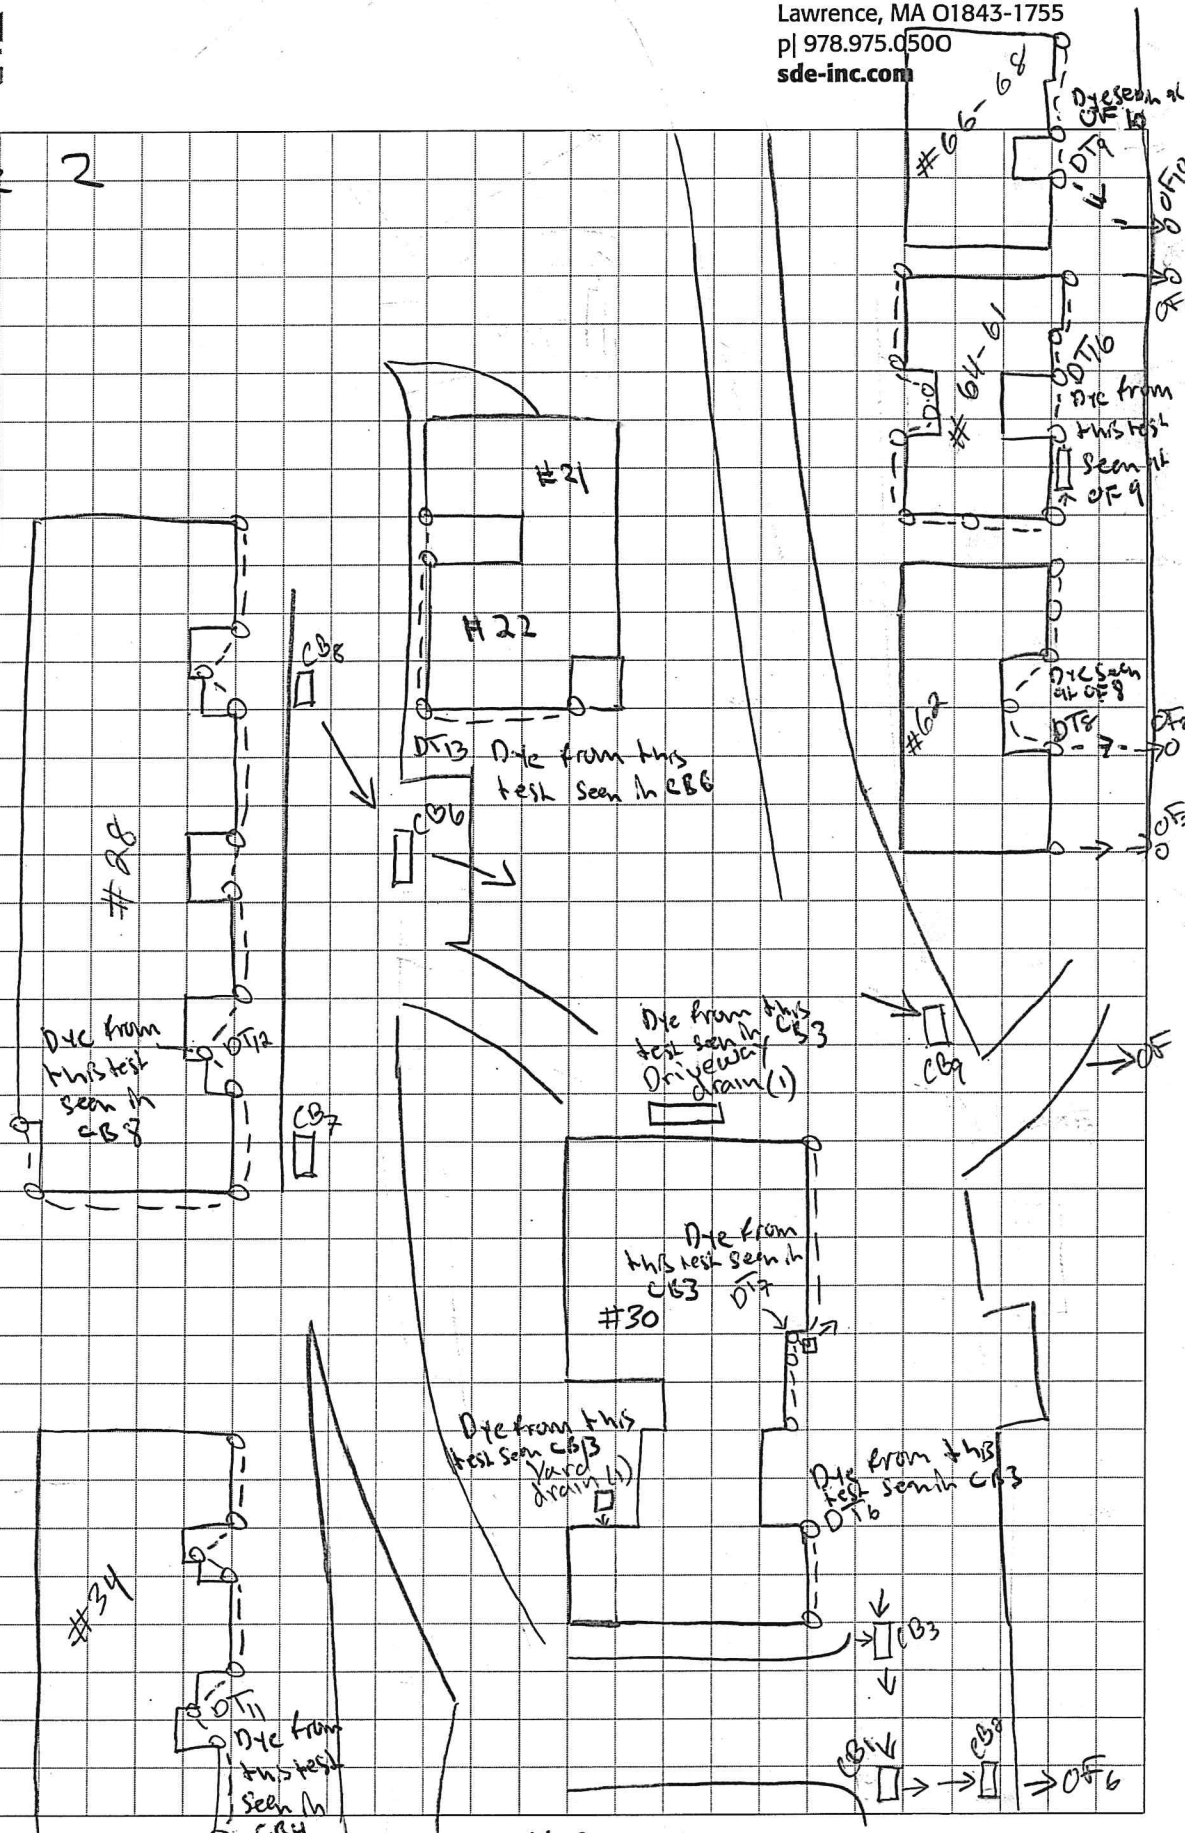 Lawrence, MA 01843-1755
p| 978.975.0500
sde-inc.com
2
#66-68
Dye seen at
OF 10
DT9
OF10
#64-61
DT16
Dye from
this test
seen at
OF 9
#21
#22
CB8
DT13
Dye from this
test seen in CB6
#62
Dye seen
at OF8
DT8
CB6
#28
Dye from
this test
seen in
CB8
DT12
CB7
Dye from this
test seen in CB3
Driveway
drain (1)
CB9
OF
Dye from
this test seen in
CB3
DT7
#30
Dye from this
test seen CB3
Yard
drain (1)
Dye from this
test seen in CB3
DT6
#34
DT11
Dye from
this test
seen in
CB4
CB3
CB1
CB2
OF6